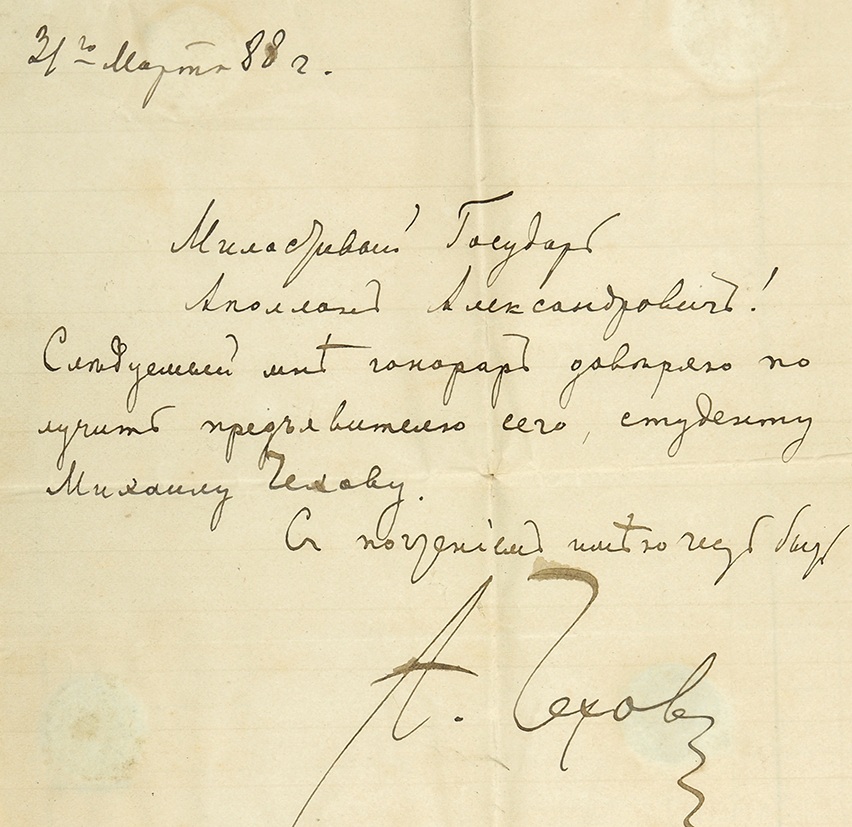 31го Марта 88 г.
Милостивый Государь
Аполлонъ Александровичъ!
Слѣдуемый мнѣ гонораръ довѣряю по
лучить предъявителю сего, студенту
Михаилу Чехову.
Съ почтеніемъ имѣю честь быть
А. Чехов